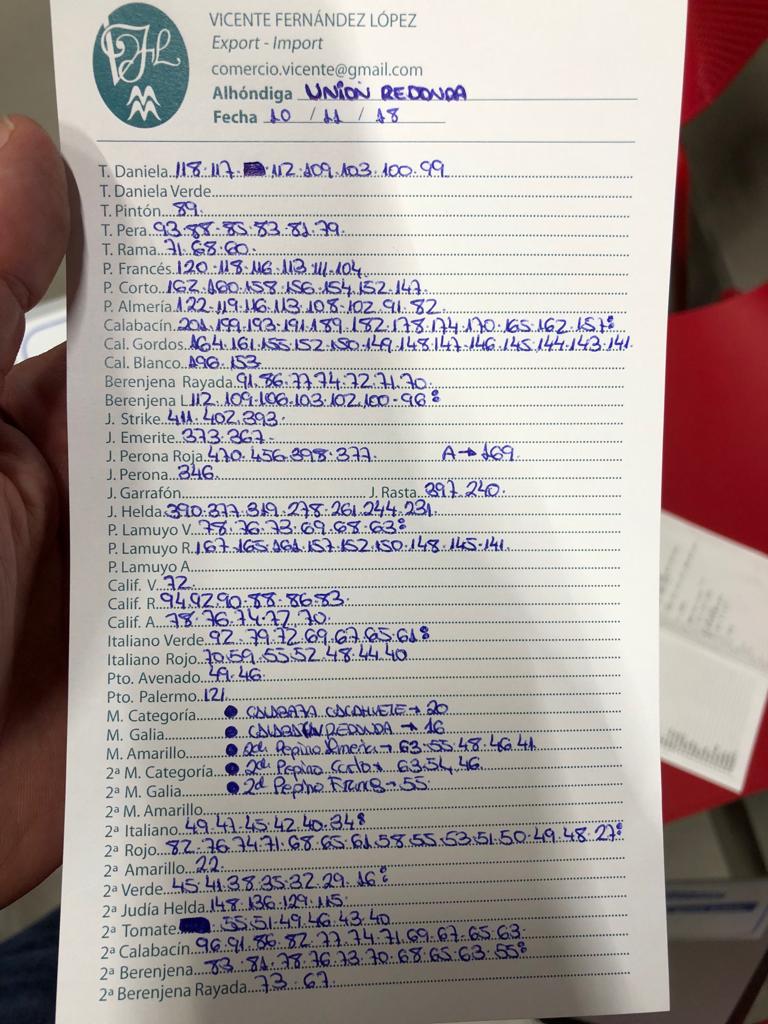 VICENTE FERNÁNDEZ LÓPEZ
Export - Import
comercio.vicente@gmail.com
Alhóndiga UNION REDONDA
Fecha 10 / 11 / 18
T. Daniela 118.117. 112.109.103.100.99
T. Daniela Verde
T. Pintón 89.
T. Pera 93.88.85.83.81.79.
T. Rama 71.68.60.
P. Francés 120.118.116.113.111.104.
P. Corto 162.160.158.156.154.152.147.
P. Almería 122.119.116.113.108.102.91.82.
Calabacín 201.199.193.191.189.182.178.174.170.165.162.157:
Cal. Gordos 164.161.155.152.150.149.148.147.146.145.144.143.141.
Cal. Blanco 196.153.
Berenjena Rayada 91.86.77.74.72.71.70.
Berenjena L 112.109.106.103.102.100.96:
J. Strike 411.402.393.
J. Emerite 373.367.
J. Perona Roja 470.456.398.377. A→169.
J. Perona 346.
J. Garrafón J. Rasta 397.240.
J. Helda 390.377.319.278.261.244.231.
P. Lamuyo V. 78.76.73.69.68.63:
P. Lamuyo R. 167.165.161.157.152.150.148.145.141.
P. Lamuyo A
Calif. V. 72.
Calif. R. 94.92.90.88.86.83.
Calif. A. 78.76.74.72.70.
Italiano Verde 92.79.72.69.67.65.61:
Italiano Rojo 70.59.55.52.48.44.40
Pto. Avenado 49.46.
Pto. Palermo 121.
M. Categoría ● CALABAZA CACAHUETE→20
M. Galia ● CALABAZA REDONDA →16
M. Amarillo ● 2da Pepino Almeria→63.55.48.46.41
2ª M. Categoría ● 2da Pepino Corto→ 63.54.46.
2ª M. Galia ● 2da Pepino Frances→55.
2ª M. Amarillo
2ª Italiano 49.47.45.42.40.34:
2ª Rojo 82.76.74.71.68.65.61.58.55.53.51.50.49.48.27:
2ª Amarillo 22.
2ª Verde 45.41.38.35.32.29.16:
2ª Judía Helda 148.136.129.115.
2ª Tomate . 55.51.49.46.43.40.
2ª Calabacín 96.91.86.82.77.74.71.69.67.65.63.
2ª Berenjena 83.81.78.76.73.70.68.65.63.55:
2ª Berenjena Rayada 73.67.